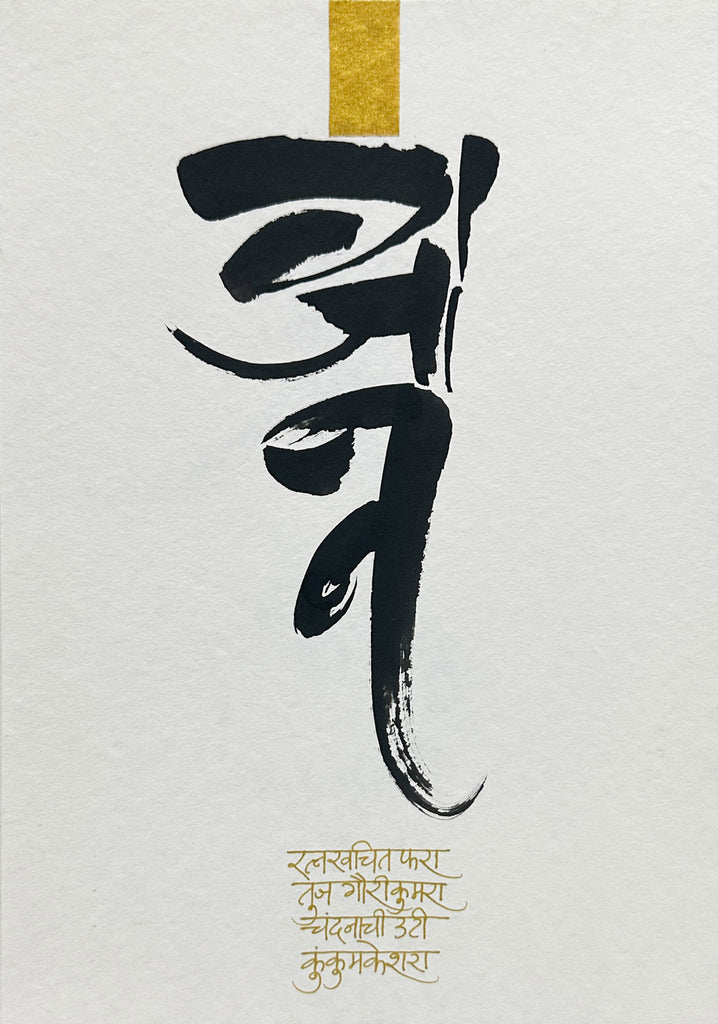 रत्नखचित फरा
तुज गौरीकुमरा
चंदनाची उटी
कुंकुमकेशरा